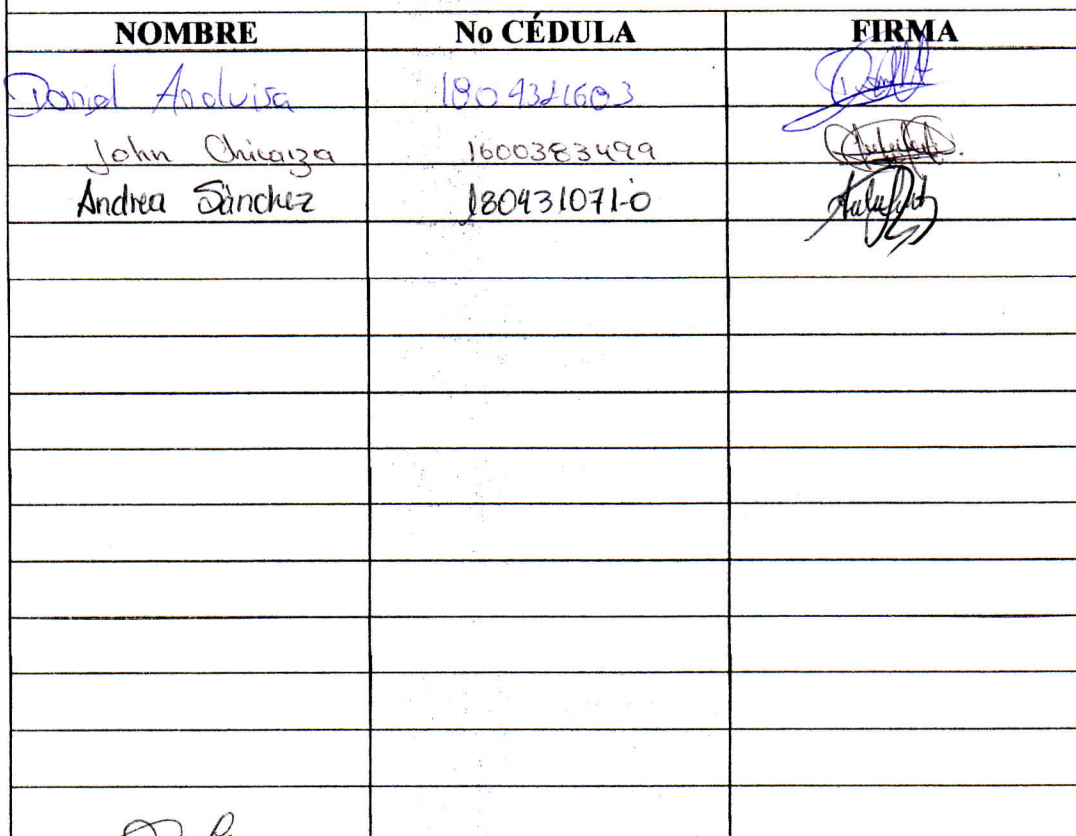 NOMBRE No CÉDULA FIRMA
Daniel Analuisa
John Chicaiza 1600383499
Andrea Sánchez 180431071-0